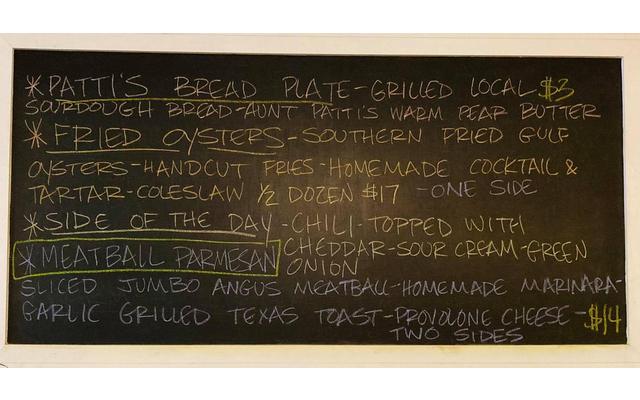 * PATTI'S BREAD PLATE - GRILLED LOCAL $3
SOURDOUGH BREAD - AUNT PATTI'S WARM PEAR BUTTER
* FRIED OYSTERS - SOUTHERN FRIED GULF
OYSTERS - HANDCUT FRIES - HOMEMADE COCKTAIL &
TARTAR - COLESLAW 1/2 DOZEN $17 - ONE SIDE
* SIDE OF THE DAY - CHILI - TOPPED WITH
CHEDDAR - SOUR CREAM - GREEN
ONION
* MEATBALL PARMESAN
SLICED JUMBO ANGUS MEATBALL - HOMEMADE MARINARA -
GARLIC GRILLED TEXAS TOAST - PROVOLONE CHEESE - $14
TWO SIDES